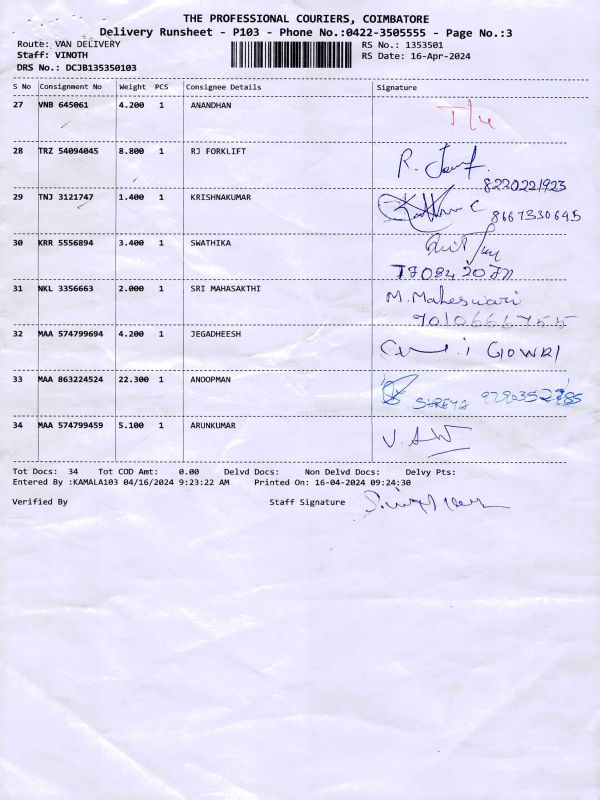 THE PROFESSIONAL COURIERS, COIMBATORE
Delivery Runsheet - P103 - Phone No.:0422-3505555 - Page No.:3
Route: VAN DELIVERY RS No.: 1353501
Staff: VINOTH RS Date: 16-Apr-2024
DRS No.: DCJB135350103
S No Consignment No Weight PCS Consignee Details Signature
27 VNB 645061 4.200 1 ANANDHAN
28 TRZ 54094045 8.800 1 RJ FORKLIFT R.
8220221923
29 TNJ 3121747 1.400 1 KRISHNAKUMAR 8667330645
30 KRR 5556894 3.400 1 SWATHIKA
31 NKL 3356663 2.000 1 SRI MAHASAKTHI M. Maheswari
9010666755
32 MAA 574799694 4.200 1 JEGADHEESH GOWRI
33 MAA 863224524 22.300 1 ANOOPMAN
34 MAA 574799459 5.100 1 ARUNKUMAR
Tot Docs: 34 Tot COD Amt: 0.00 Delvd Docs: Non Delvd Docs: Delvy Pts:
Entered By :KAMALA103 04/16/2024 9:23:22 AM Printed On: 16-04-2024 09:24:30
Verified By Staff Signature